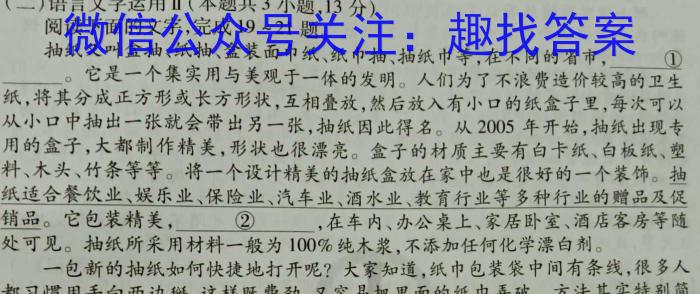 (二)语言文字运用Ⅱ(本题共3小题,13分)
微信公众号关注：趣找答案
阅读 面的文字,完成19 21题。
抽纸又叫盒 纸抽、盒装面巾纸、纸巾抽、抽纸巾等,在不同的省市, ①
。它是一个集实用与美观于一体的发明。人们为了不浪费造价较高的卫生
纸,将其分成正方形或长方形状,互相叠放,然后放入有小口的纸盒子里,每次可以
从小口中抽出一张就会带出另一张,抽纸因此得名。从2005年开始,抽纸出现专
用的盒子,大都制作精美,形状也很漂亮。盒子的材质主要有白卡纸、白板纸、塑
料、木头、竹条等等。将一个设计精美的抽纸盒放在家中也是很好的一个装饰。抽
纸适合餐饮业、娱乐业、保险业、汽车业、酒水业、教育行业等多种行业的赠品及促
销品。它包装精美, ② ,在车内、办公桌上、家居卧室、酒店客房等随
处可见。抽纸所采用材料一般为100%纯木浆,不添加任何化学漂白剂。
一包新的抽纸如何快捷地打开呢？大家知道,纸巾包装袋中间有条线,很多人
都习惯用手向两边掰,这样既费劲,又容易把里面的纸巾弄破。方法其实特别简